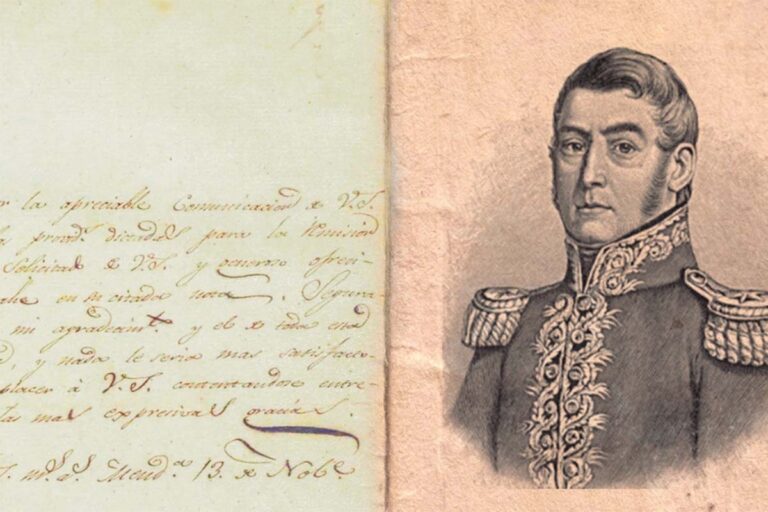 r la apreciable Comunicacion de V.S.
la provid.s dictadas para la remision
Solicitud de V.S. y generoso ofreci-
en su citada nota. Segura
mi agradecim.to y el de toda
y nada le seria mas satisfacto-
placer á V.S. contentandose entre-
las mas expresivas gracias.
m.s a.s Mend.a 13. de Nob.e